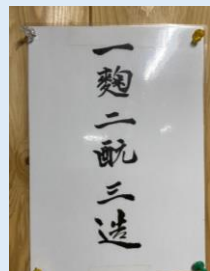 一麴二酛三造